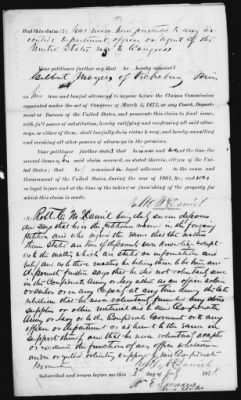 that this claim has never been presented to any de-
partment, officer or agent of the
United States nor to Congress
Your petitioner further says, that he hereby appoints
Gilbert Moyers of Vicksburg Miss
his true and lawful attorney to appear before the Claims Commission
appointed under the act of Congress of March 3, 1871, or any Court, Depart-
ment or Bureau of the United States, and prosecute this claim to final issue,
with full power of substitution, hereby ratifying and confirming all said attor-
neys, or either of them, shall lawfully do in virtue hereof, and hereby annulling
and revoking all other powers of attorney in the premises.
Your petitioner further avers that he was and is at the
several times in said claim accrued, as stated therein, citizen of the United
States; that he remained loyal adherent to the cause and
Government of the United States, during the war of 1861-5; and
loyal before and at the time of the taking or furnishing of the property for
which this claim is made.
McDaniel
Robt. C. McDaniel being duly sworn deposes
and says that he is the petitioner named in the foregoing
petition and who signed the same that the matters
therein stated are true of deponent's own knowledge except
as to the matters which are stated on information and
belief and as to those matters he believes them to be true and
deponent further says that he did not voluntarily serve
in the Confederate Army or Navy either as an officer, soldier
or sailor or in any capacity at any time during the late
rebellion that he never voluntarily furnished any stores
supplies or other material aid to said Confederate
Army or Navy or to the Confederate Government or to any
officer or department
support thereof and that he never voluntarily accepted
or exercised the functions of any office whatsoever
under or yielded voluntary support to said Confederate
Government.
Subscribed and sworn before me this 3 day of July 1871